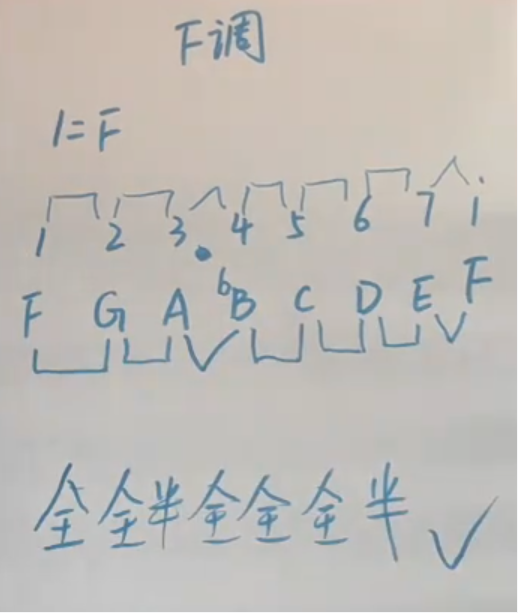 F调
1=F
1 2 3 4 5 6 7 i
F G A ᵇB C D E F
全全半全全全半